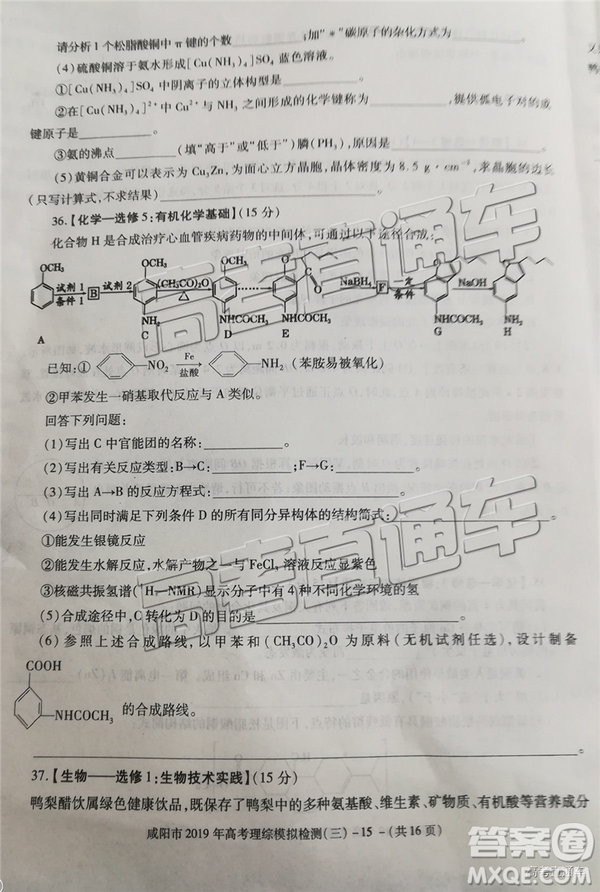 请分析1个松脂酸铜中π键的个数________;加"*"碳原子的杂化方式为________。
(4)硫酸铜溶于氨水形成[Cu(NH₃)₄]SO₄ 蓝色溶液。
①[Cu(NH₃)₄]SO₄ 中阴离子的立体构型是________。
②在[Cu(NH₃)₄]²⁺中Cu²⁺与NH₃ 之间形成的化学键称为________,提供孤电子对的成
键原子是________。
③氨的沸点________(填"高于"或"低于")膦(PH₃),原因是________。
(5)黄铜合金可以表示为Cu₃Zn,为面心立方晶胞,晶胞密度为8.5 g·cm⁻³,求晶胞的边长
(只写计算式,不求结果)________。
36.【化学—选修5:有机化学基础】(15分)
化合物H是合成治疗心血管疾病药物的中间体,可通过以下途径合成:
OCH₃ 试剂1 条件1 B 试剂2 (CH₃CO)₂O △ NaBH₄ F 一定条件 NaOH
NH₂ NHCOCH₃ NHCOCH₃ NHCOCH₃ NH₂
A C D E G H
已知:① NO₂ Fe 盐酸 NH₂ (苯胺易被氧化)
②甲苯发生一硝基取代反应与A类似。
回答下列问题:
(1)写出C中官能团的名称:________。
(2)写出有关反应类型:B→C:________;F→G:________。
(3)写出A→B的反应方程式:________。
(4)写出同时满足下列条件D的所有同分异构体的结构简式:________
①能发生银镜反应
②能发生水解反应,水解产物之一与FeCl₃ 溶液反应显紫色
③核磁共振氢谱(¹H—NMR)显示分子中有4种不同化学环境的氢
(5)合成途径中,C转化为D的目的是________。
(6)参照上述合成路线,以甲苯和(CH₃CO)₂O为原料(无机试剂任选),设计制备
COOH
NHCOCH₃ 的合成路线。
37.【生物——选修1:生物技术实践】(15分)
鸭梨醋饮属绿色健康饮品,既保存了鸭梨中的多种氨基酸、维生素、矿物质、有机酸等营养成分
咸阳市2019年高考理综模拟检测(三)-15-(共16页)
高考直通车
高考直通车
答案圈
高考直通车